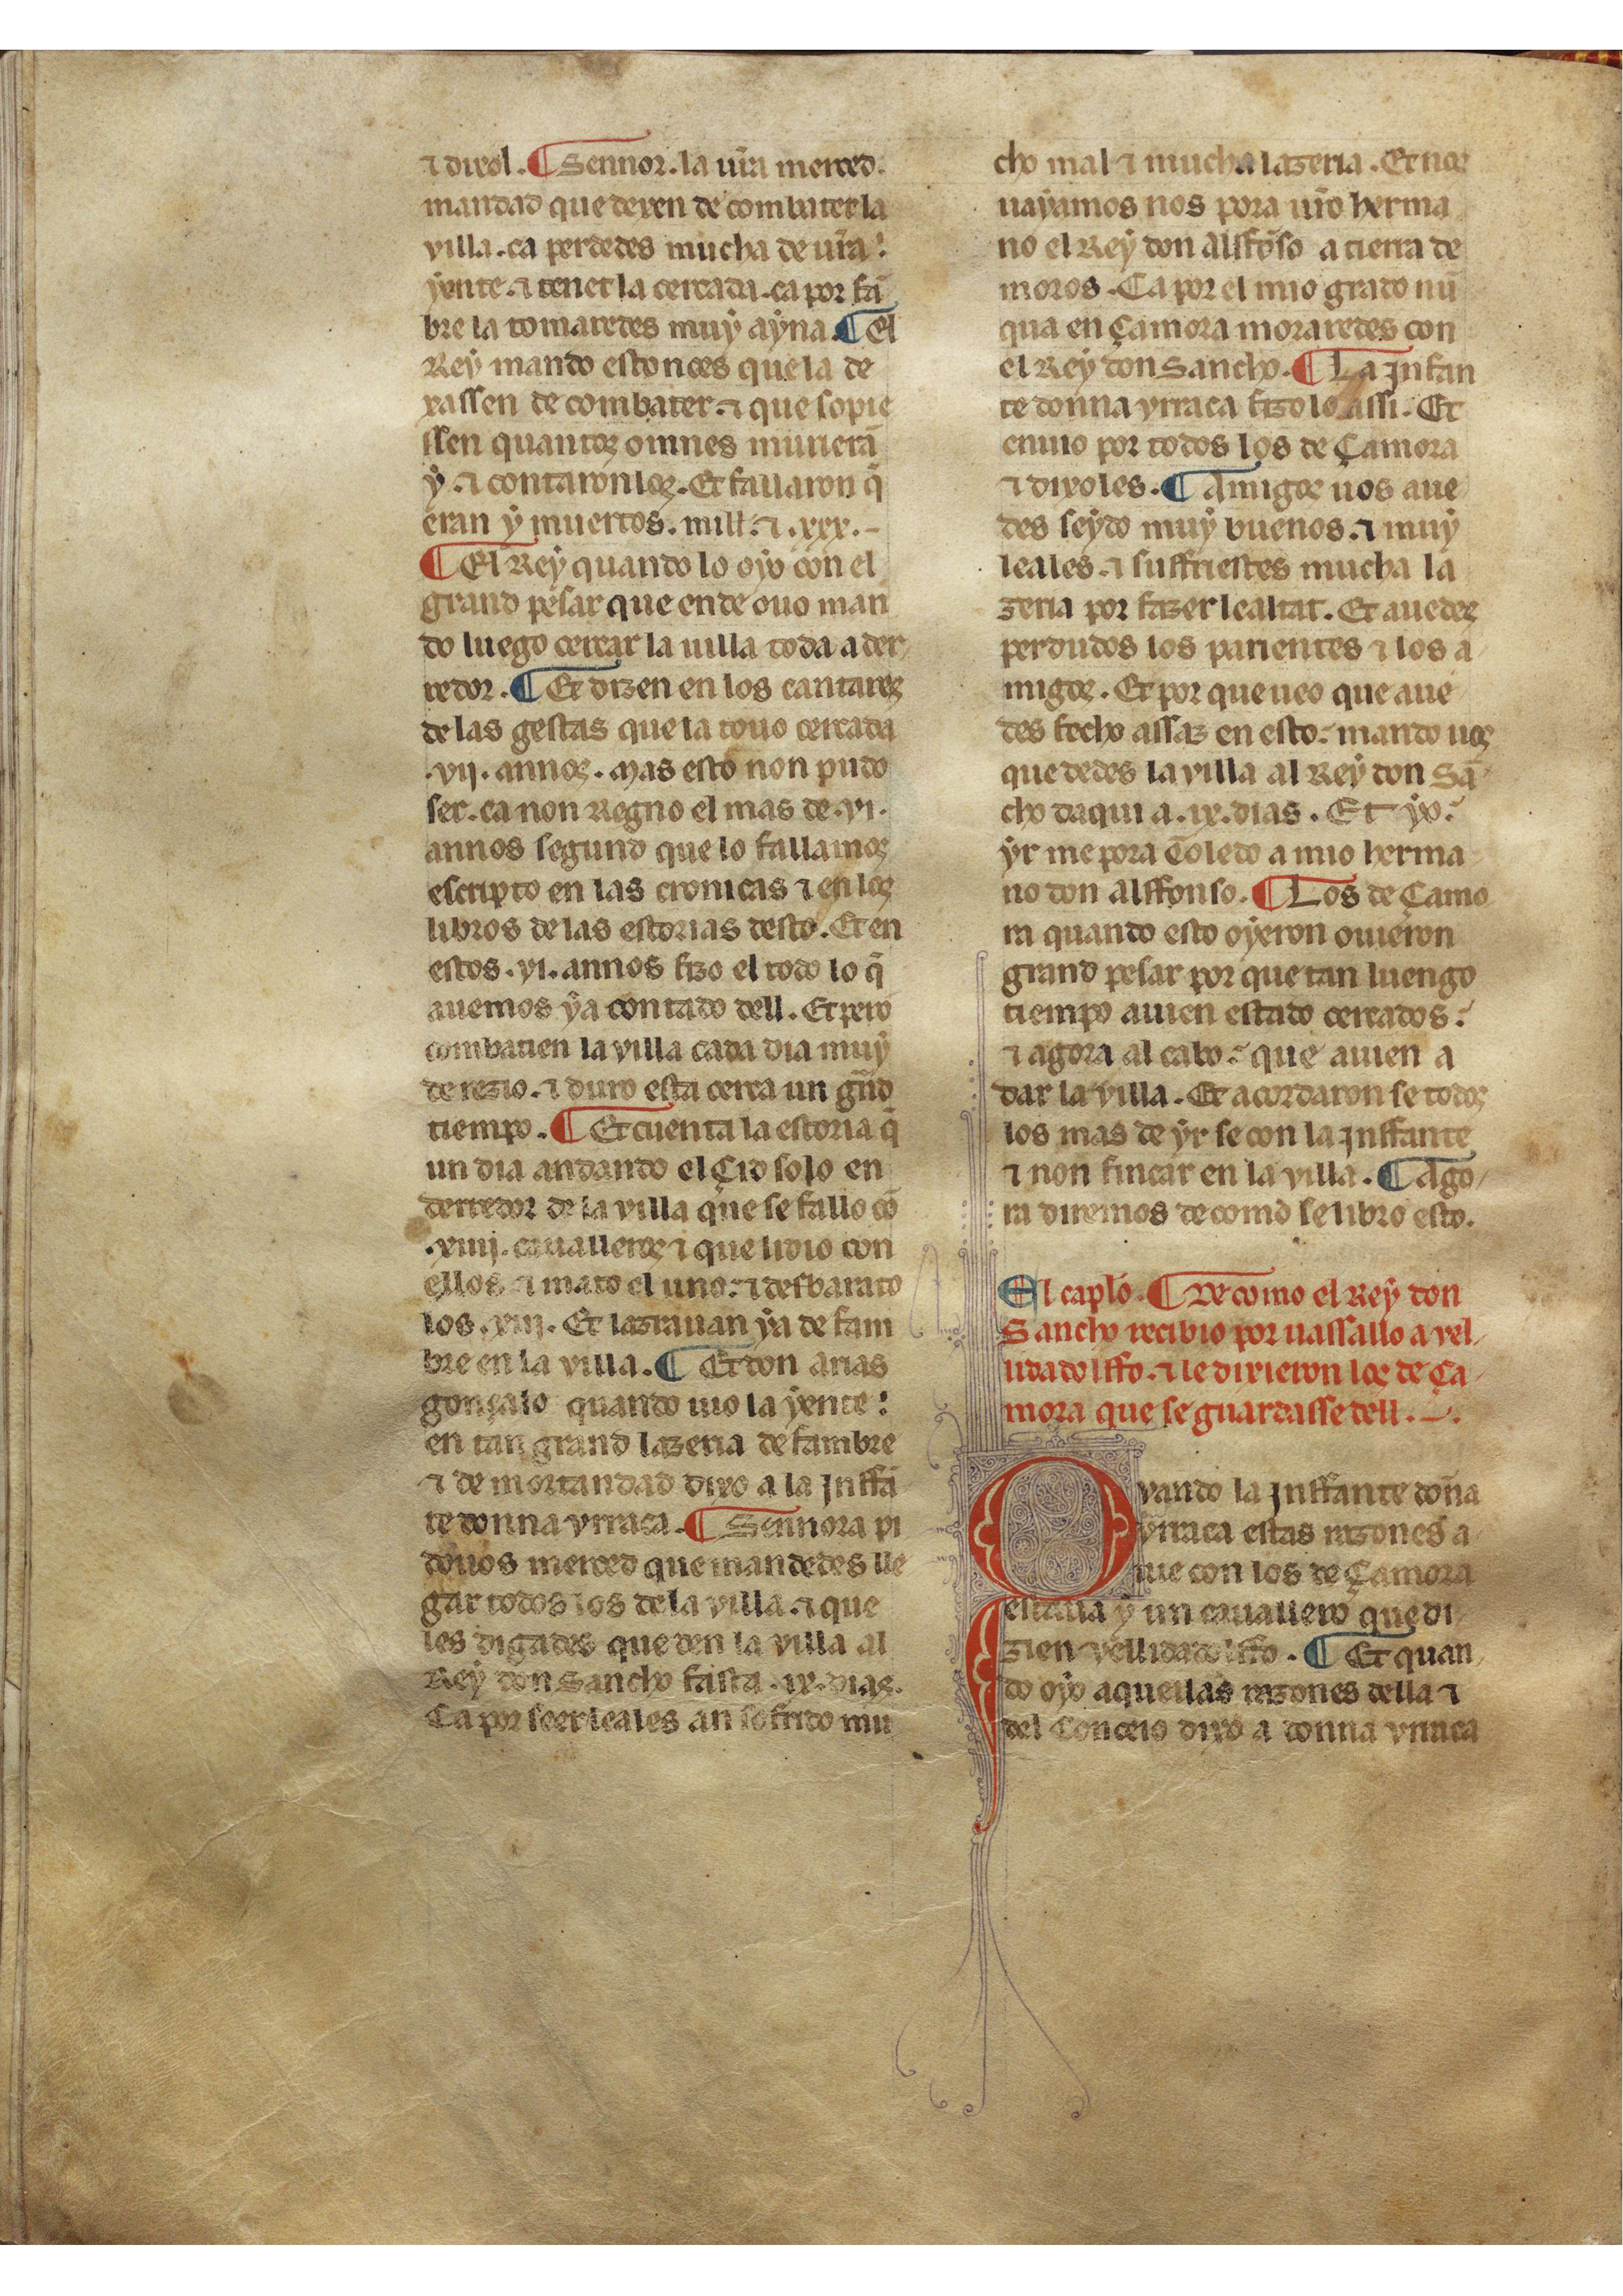 ⁊ dixol. ¶ Sennor. la ur̃a merced.
mandad que dexen de combater la
villa. ca perdedes mucha de ur̃a
yente. ⁊ tenet la cercada. ca por fã
bre la tomaredes muẏ aẏna. ¶ El
Reẏ mando estonces que la de
xassen de combater. ⁊ que sopie
ssen quantos omnes murierã
ẏ. ⁊ contaron los. Et fallaron q̃
eran ẏ muertos. mill. ⁊ .xxx.
¶ El Reẏ quando lo oẏo con el
grand pesar que ende ouo man
do luego cercar la uilla toda a der
redor. ¶ Et dizen en los cantares
de las gestas que la touo cercada
.vij. annos. Mas esto non pudo
ser. ca non Regno el mas de .vi.
annos segund que lo fallamos
escripto en las cronicas ⁊ en los
libros de las estorias desto. Et en
estos .vi. annos fizo el todo lo q̃
auemos ẏa contado dell. Et pero
combatien la villa cada dia muẏ
de rezio. ⁊ duro esta cerca un gñd
tiempo. ¶ Et cuenta la estoria q̃
un dia andando el Çid solo en
derredor de la villa que se fallo cõ
.xiiij. caualleros ⁊ que lidio con
ellos ⁊ mato el uno. ⁊ desbarato
los .xiij. Et lazrauan ẏa de fam
bre en la villa. ¶ Et don Arias
gonçalo quando uio la ẏente
en tan grand lazeria de fambre
⁊ de mortandad dixo a la Jnffã
te donna Vrraca. ¶ Sennora pi
douos merced que mandedes lle
gar todos los de la villa. ⁊ que
les digades que den la villa al
Reẏ don Sancho fasta .ix. dias.
Ca por seer leales an sofrido mu
cho mal ⁊ mucha lazeria. Et nos
uaẏamos nos pora ur̃o herma
no el Reẏ don Alffonso a tierra de
moros. Ca por el mio grado nũ
qua en Çamora moraredes con
el Reẏ don Sancho. ¶ La Jnfan
te donna Vrraca fizo lo assi. Et
enuio por todos los de Çamora
⁊ dixoles. ¶ Amigos uos aue
des seẏdo muẏ buenos. ⁊ muẏ
leales. ⁊ suffriestes mucha la
zeria por fazer lealtat. Et auedes
perdudos los parientes ⁊ los a
migos. Et por que ueo que aue
des fecho assaz en esto. mando uos
que dedes la villa al Reẏ don Sã
cho daqui a .ix. dias. Et ẏo.
ẏr me pora Toledo a mio herma
no don Alffonso. ¶ Los de Çamo
ra quando esto oẏeron ouieron
grand pesar por que tan luengo
tiempo auien estado cercados.
⁊ agora al cabo. que auien a
dar la villa. Et acordaron se todos
los mas de ẏr se con la Jnffante
⁊ non fincar en la villa. ¶ Ago
ra diremos de como se libro esto.
El cap̃lo. ¶ De como el Reẏ don
Sancho recibio por uassallo a vel
lidadolffo. ⁊ le dixieron los de Ça
mora que se guardasse dell.
Qvando la Jnffante dõna
Vrraca estas razones a
uie con los de Çamora
estaua ẏ un cauallero que di
zien vellidadolffo. ¶ Et quan
do oẏo aquellas razones della ⁊
del Conceio dixo a donna Vrraca